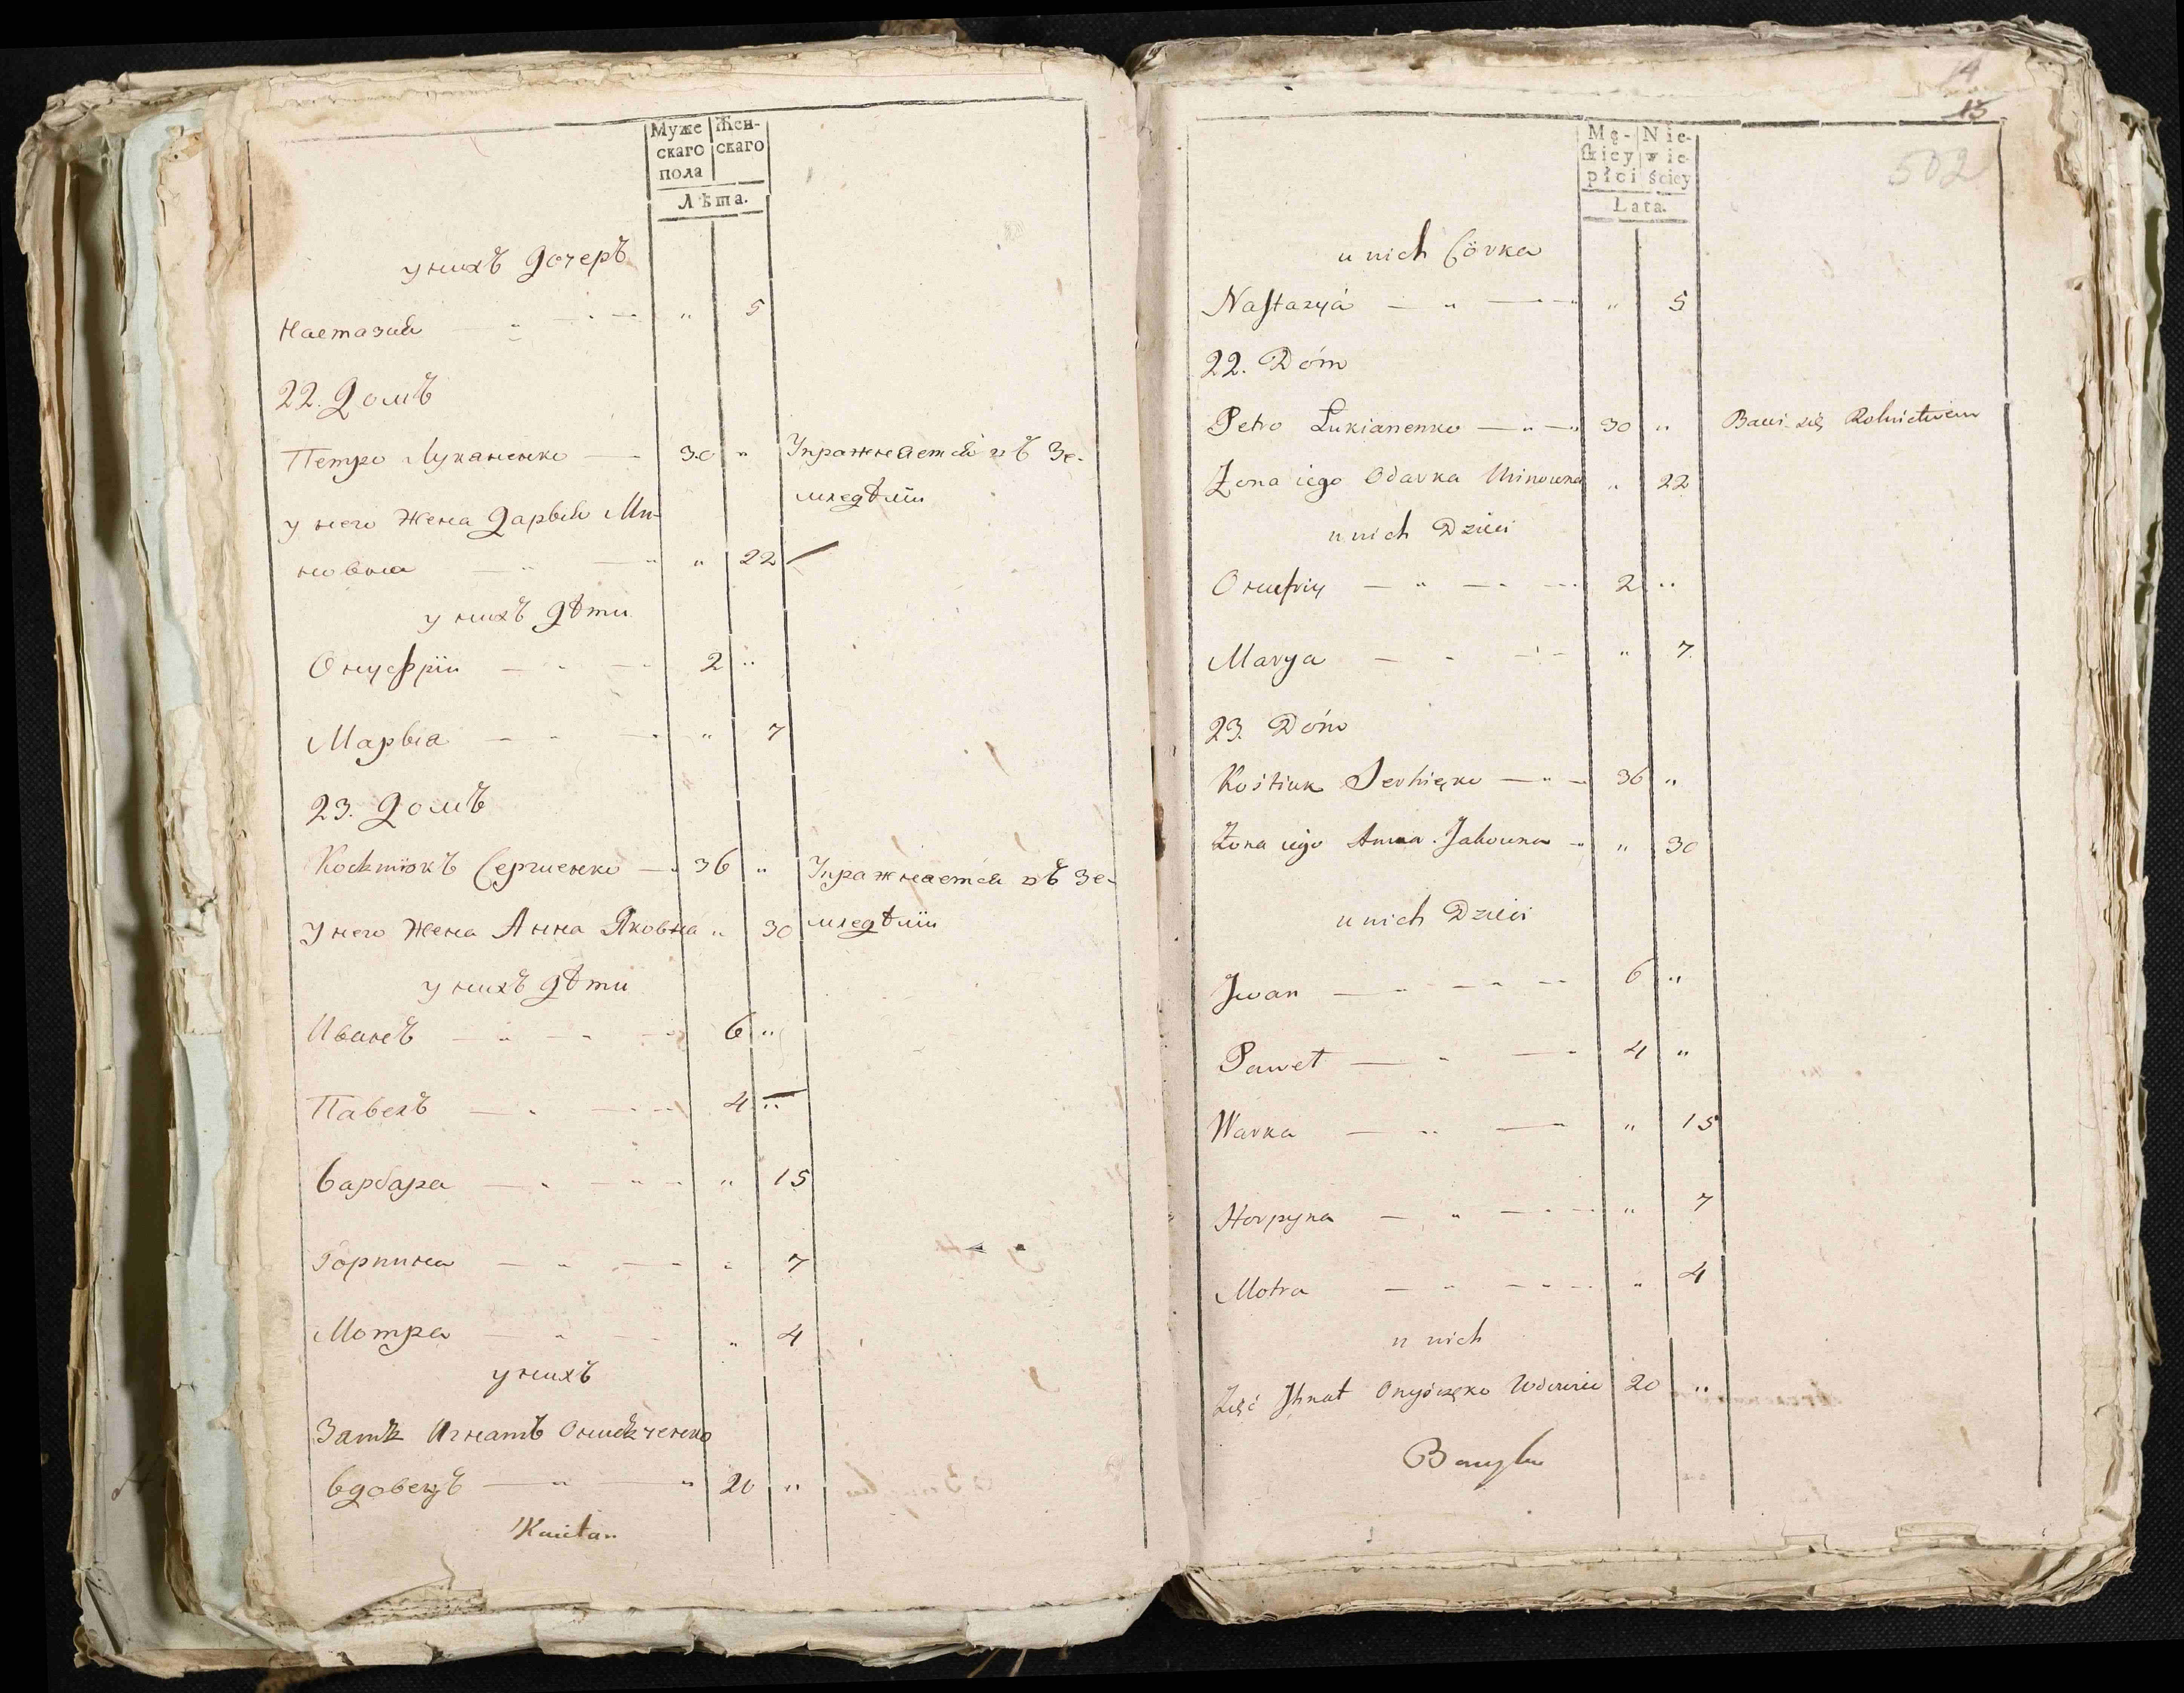 Муже
скаго
пола
Жен-
скаго
Лѣта.
у нихъ дочеръ
Настазия — „ — „ 5
22. Домъ
Петро Луканенко — 30 „ Упражняется въ Зе-
мледѣлiи
у него Жена Дарья Ми-
новна — „ — „ 22
у нихъ дѣти
Онуфрiи — „ — 2 „
Марья — „ — „ 7
23. Домъ
Костюкъ Сергиенко — 36 „ Упражняется въ Зе-
У него Жена Анна Яковна „ 30 мледѣлiи
у нихъ дѣти
Иванъ — „ — 6 „
Павелъ — „ — 4 „
Варбара — „ — „ 15
Горпина — „ — „ 7
Мотра — „ — „ 4
у нихъ
Зять Игнатъ Онисьченко
вдовецъ — „ — „ 20 „
Kaietan
14
15
502
Mę-
skiey
płci
Nie-
wie-
ściey
Lata.
u nich Córka
Nastazya — „ — „ 5
22. Dóm
Petro Lukianenko — „ — 30 „ Bawi się Rolnictwem
Żona iego Odarka Minowna „ 22
u nich Dzieci
Onufriy — „ — 2 „
Marya — „ — „ 7
23. Dóm
Kostiuk Serhięko — „ — 36 „
Żona iego Anna Jakowna „ „ 30
u nich Dzieci
Jwan — „ — 6 „
Paweł — „ — 4 „
Warka — „ — „ 15
Horpyna — „ — „ 7
Motra — „ — „ 4
u nich
Zięć Jhnat Onyśczęko Wdowiec 20 „